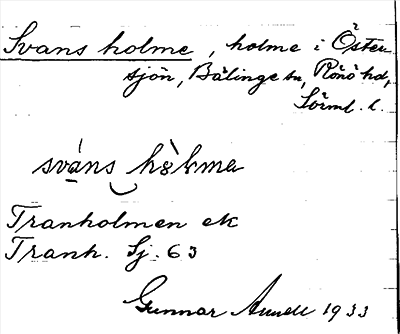 Svans holme, holme i Öster
sjön, Bälinge sn, Rönö hd,
Sörml. l.
svá̱ns hòlma
Tranholmen ek
Tranh. Sj. 63
Gunnar Amell 1933